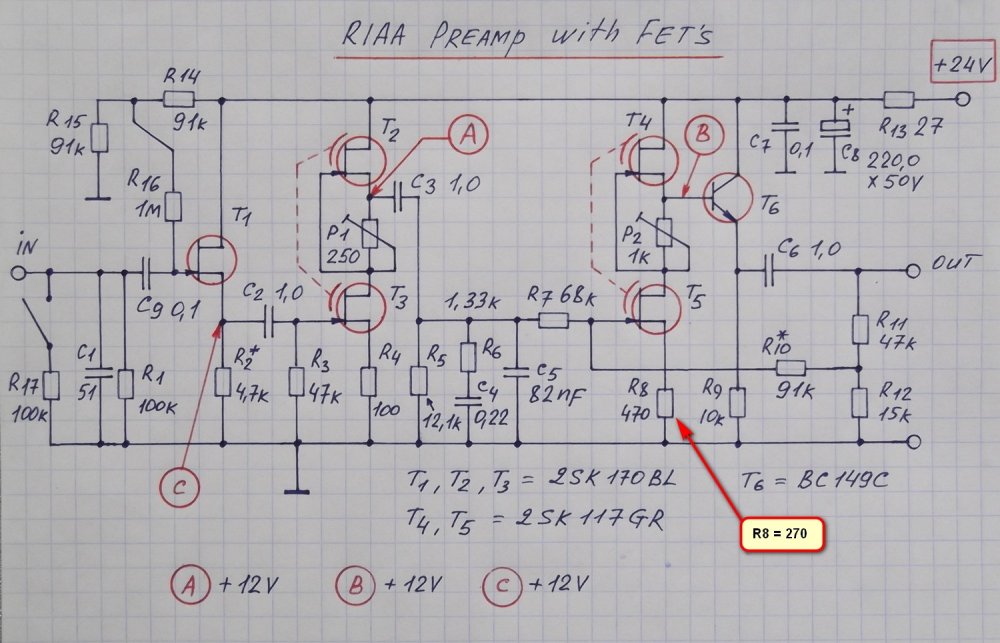 RIAA PREAMP with FET's
+24V
R14
91k
R15
91k
R16
1M
T1
T2
A
C3 1,0
P1
250
T3
T4
B
C7
0,1
+
C8
220,0
x 50V
R13 27
T6
P2
1k
T5
C6 1,0
OUT
iN
C9 0,1
C2 1,0
1,33k
R7 68k
R11
47k
R10*
91k
R12
15k
R17
100k
C1
51
R1
100k
R2*
4,7k
R3
47k
R4
100
R5
12,1k
R6
C4
0,22
C5
82nF
R8
470
R9
10k
C
T1, T2, T3 = 2SK170BL
T6 = BC149C
T4, T5 = 2SK117GR
R8 = 270
A +12V B +12V C +12V